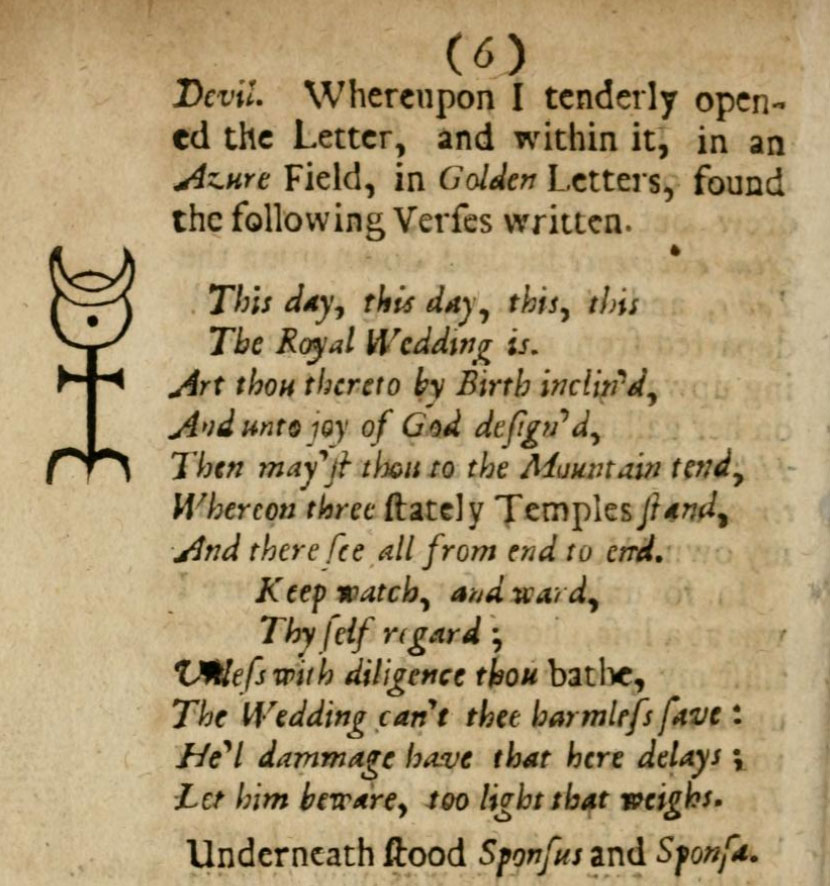 (6)
Devil. Whereupon I tenderly open-
ed the Letter, and within it, in an
Azure Field, in Golden Letters, found
the following Verſes written.
This day, this day, this, this
The Royal Wedding is.
Art thou thereto by Birth inclin'd,
And unto joy of God deſign'd,
Then may'ſt thou to the Mountain tend,
Whereon three ſtately Temples ſtand,
And there ſee all from end to end.
Keep watch, and ward,
Thy ſelf regard ;
Unleſs with diligence thou bathe,
The Wedding can't thee harmleſs ſave :
He'l dammage have that here delays ;
Let him beware, too light that weighs.
Underneath ſtood Sponſus and Sponſa.